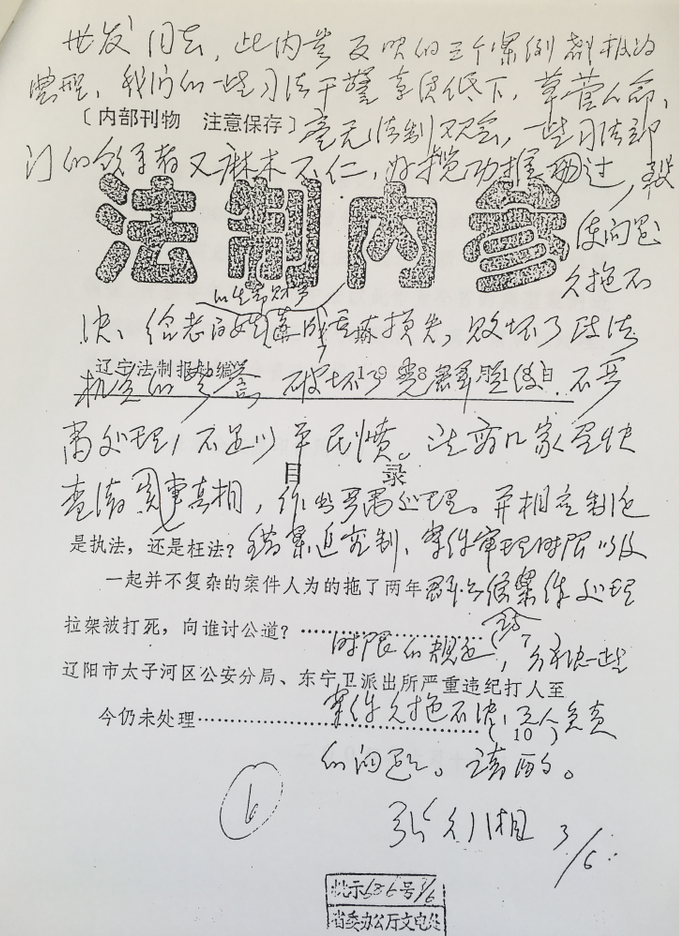 世发同志，此内参反映的三个案例都极为
典型，我们的一些司法干警素质低下，草菅人命，
〔内部刊物 注意保存〕
毫无法制观念，一些司法部
门的领导者又麻木不仁，好揽功推过，致
法制内参
使问题
久拖不
以生命财产
决，给老百姓造成重大损失，败坏了政法
辽宁法制报社编
机关的声誉，破坏了
不严
肃处理，不足以平民愤。法商几家尽快
目录
查清事实真相，作出严肃处理。并相应制定
是执法，还是枉法？
错案追究制、案件审理时限以及
一起并不复杂的案件人为的拖了两年
案件处理
拉架被打死，向谁讨公道？ ……………………（7）
时限的规定，解决一些
辽阳市太子河区公安分局、东宁卫派出所严重违纪打人至
案件久拖不决，无人负责
今仍未处理……………………………（10）
的问题。请酌。
6
3/6
批示686号3/6
省委办公厅文电处